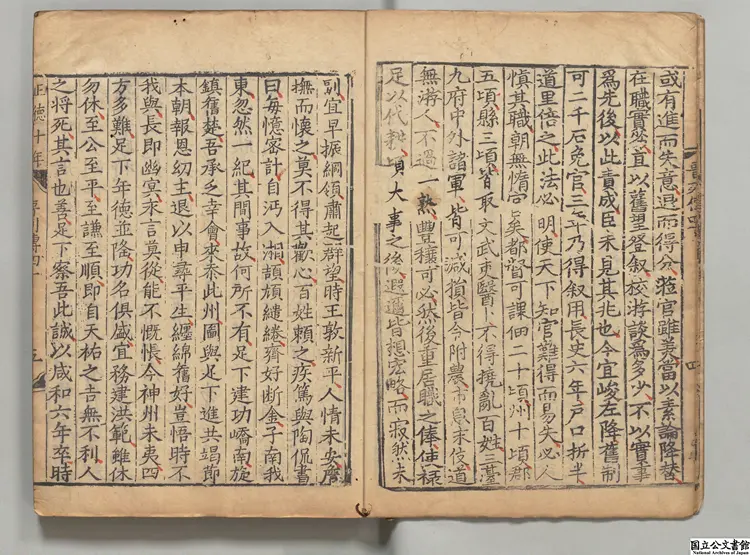 或有進而失意退而得分蒞官雖美當以素論降替
在職實劣直以舊望登敘校游談爲多少不以實事
爲先後以此責成臣未見其兆也今宜峻左降舊制
可二千石免官三年乃得敘用長史六年戶口折半
道里倍之此法必明使天下知官難得而易失必人
慎其職朝無惰官矣都督可課佃二十頃州十頃郡
五頃縣三頃皆取文武吏醫卜不得撓亂百姓三臺
九府中外諸軍皆可減損皆令附農市息末伎道
無游人不過一熟豐穰可必然後重居職之俸使祿
足以代耕頃大事之後遐邇皆想宏略而寂然未
副宜早振綱領肅起群望時王敦新平人情未安詹
撫而懷之莫不得其歡心百姓賴之疾篤與陶侃書
曰每憶密計自沔入湘頡頏繾綣齊好斷金子南我
東忽然一紀其間事故何所不有足下建功嶠南旋
鎮舊楚吾承乏幸會來忝此州圖與足下進共竭節
本朝報恩幼主退以申尋平生纏綿舊好豈悟時不
我與長即幽冥永言莫從能不慨悵今神州未夷四
方多難足下年德並隆功名俱盛宜務建洪範雖休
勿休至公至平至謙至順即自天祐之吉無不利人
之將死其言也善足下察吾此誠以咸和六年卒時
正德十年
國立公文書館
National Archives of Japan